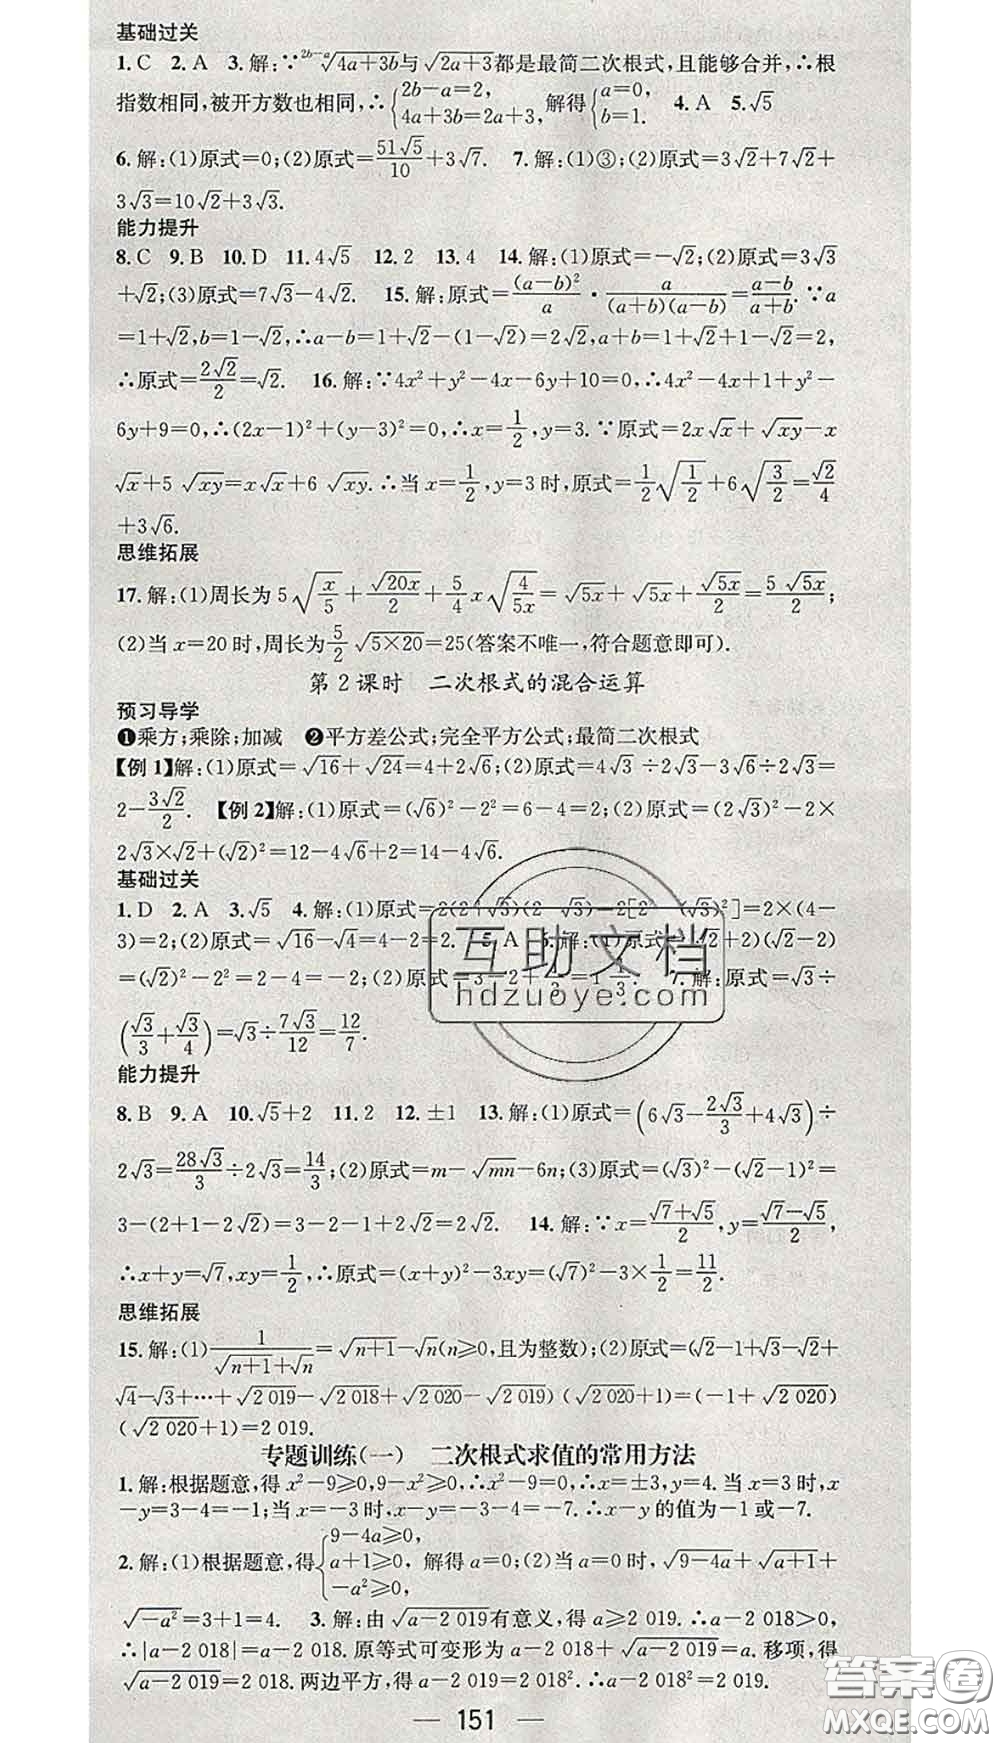 基础过关
1. C 2. A 3. 解:∵ ^{2b-a}√(4a+3b)与√(2a+3)都是最简二次根式,且能够合并,∴根
指数相同,被开方数也相同,∴{2b-a=2, 4a+3b=2a+3, 解得{a=0, b=1. 4. A 5. √5
6. 解:(1)原式=0;(2)原式=51√5/10+3√7. 7. 解:(1)③;(2)原式=3√2+7√2+
3√3=10√2+3√3.
能力提升
8. C 9. B 10. D 11. 4√5 12. 2 13. 4 14. 解:(1)原式=-√2;(2)原式=3√3
+√2;(3)原式=7√3-4√2. 15. 解:原式=(a-b)²/a·a/((a+b)(a-b))=(a-b)/(a+b). ∵a
=1+√2,b=1-√2,∴a-b=1+√2-(1-√2)=2√2,a+b=1+√2+1-√2=2,
∴原式=2√2/2=√2. 16. 解:∵4x²+y²-4x-6y+10=0,∴4x²-4x+1+y²-
6y+9=0,∴(2x-1)²+(y-3)²=0,∴x=1/2,y=3. ∵原式=2x√x+√(xy)-x
√x+5√(xy)=x√x+6√(xy). ∴当x=1/2,y=3时,原式=1/2√(1/2)+6√(3/2)=√2/4
+3√6.
思维拓展
17. 解:(1)周长为5√(x/5)+√(20x)/2+5/4x√(4/(5x))=√(5x)+√(5x)+√(5x)/2=5√(5x)/2;
(2)当x=20时,周长为5/2√(5×20)=25(答案不唯一,符合题意即可).
第2课时 二次根式的混合运算
预习导学
❶乘方;乘除;加减 ❷平方差公式;完全平方公式;最简二次根式
【例1】解:(1)原式=√16+√24=4+2√6;(2)原式=4√3÷2√3-3√6÷2√3=
2-3√2/2. 【例2】解:(1)原式=(√6)²-2²=6-4=2;(2)原式=(2√3)²-2×
2√3×√2+(√2)²=12-4√6+2=14-4√6.
基础过关
1. D 2. A 3. √5 4. 解:(1)原式=2(2+√3)(2-√3)=2[2²-(√3)²]=2×(4-
3)=2;(2)原式=√16-√4=4-2=2. 5. A 6. 解:(1)原式=(√2+2)(√2-2)
=(√2)²-2²=2-4=-2;(2)原式=3-2+ 7. 解:原式=√3÷
(√3/3+√3/4)=√3÷7√3/12=12/7.
能力提升
8. B 9. A 10. √5+2 11. 2 12. ±1 13. 解:(1)原式=(6√3-2√3/3+4√3)÷
2√3=28√3/3÷2√3=14/3;(2)原式=m-√(mn)-6n;(3)原式=(√3)²-(√2-1)²=
3-(2+1-2√2)=3-2-1+2√2=2√2. 14. 解:∵x=(√7+√5)/2,y=(√7-√5)/2,
∴x+y=√7,xy=1/2,∴原式=(x+y)²-3xy=(√7)²-3×1/2=11/2.
思维拓展
15. 解:(1)1/(√(n+1)+√n)=√(n+1)-√n(n≥0,且为整数);(2)原式=(√2-1+√3-√2+
√4-√3+…+√2 019-√2 018+√2 020-√2 019)(√2 020+1)=(-1+√2 020)
(√2 020+1)=2 019.
专题训练(一) 二次根式求值的常用方法
1. 解:根据题意,得x²-9≥0,9-x²≥0,∴x²-9=0,∴x=±3,y=4. 当x=3时,x
-y=3-4=-1;当x=-3时,x-y=-3-4=-7. ∴x-y的值为-1或-7.
2. 解:(1)根据题意,得{9-4a≥0, a+1≥0, -a²≥0, 解得a=0;(2)当a=0时,√(9-4a)+√(a+1)+
√(-a²)=3+1=4. 3. 解:由√(a-2 019)有意义,得a≥2 019. ∴a-2 018>0,
∴|a-2 018|=a-2 018. 原等式可变形为a-2 018+√(a-2 019)=a. 移项,得
√(a-2 019)=2 018. 两边平方,得a-2 019=2 018². ∴a-2 018²=2 019.
151
互助文档
hdzuoye.com
答案圈
MXQE.COM